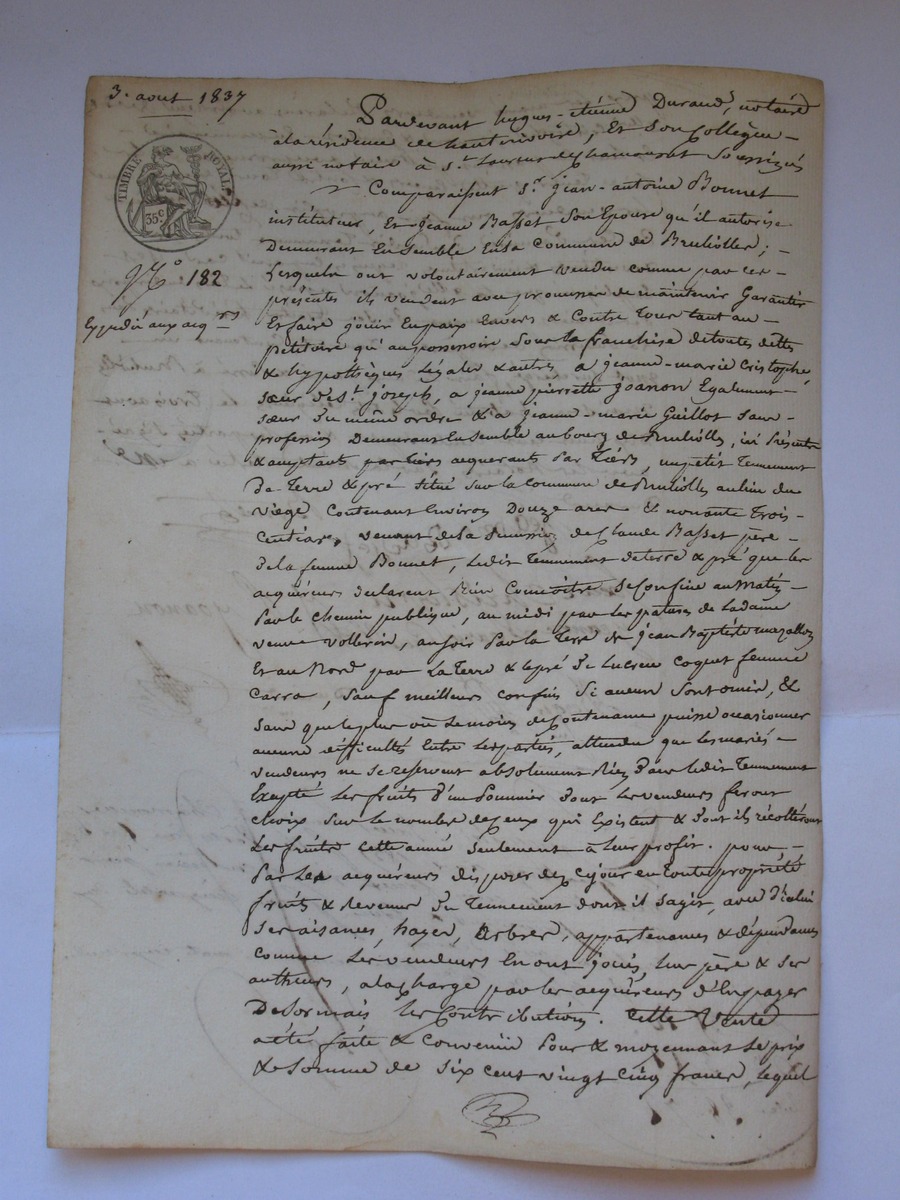 3. aout 1837
TIMBRE ROYAL
35 c
N.º 182
Expedié aux acq.rs
Pardevant hugues-étienne Durand, notaire
à la résidence de hauterivoire, Et son Collegue
aussi notaire à St. Laurent de Chamousset Soussignés
Comparaissent Sr. jean-antoine Bonnet
instituteur, Et jeanne Basset Son Epouse qu'il autorise
Demeurant Ensemble En la Commune de Brulliolles;
Lesquels ont volontairement vendu comme par ces
présentes ils vendent avec promesse de maintenir Garantir
Et faire jouir En paix Envers & Contre tous tant au
petitoire qu'au possessoire Sous la franchise de toutes dettes
& hypothèques Légales & autres, a jeanne-marie Cristophe
sœur de St. joseph, a jeanne pierrette joanon Egalement
sœur du même ordre & a jeanne-marie Guillot Sans
profession Demeurant Ensemble au bourg de Brulliolles, ici Présentes
& acceptants par tiers acquerants Par Tiers, un petit Tennement
De Terre & pré Situé Sur la Commune de Brulliolles au lieu du
viège Contenant Environ Douze ares & nonante Trois
Centiares, venant de la Demission de Claude Basset père
de la femme Bonnet, Ledit Tennement de terre & pré que les
acquéreurs declarent Bien Connoître Se Confine au Matin
Par le chemin publique, au midi par les patures de Ladame
veuve, au soir Par la Terre de jean Baptiste
Et au Nord par La Terre & Le pré De Lucrece Coquet femme
Carra, Sauf meilleurs Confins Si aucuns Sont omis, &
sans que le plus ou Le moins de Contenance puisse occasionner
aucune difficultés Entre Les parties, attendu que les mariés
vendeurs ne se reservent absolument Rien Dans Ledit Tennement
Excepté Les fruits d'un Pommier Dont Les vendeurs feront
choix Sur Le nombre de Ceux qui Existent & Dont ils récolteront
Les fruits cette année Seulement à Leur profit. pour
Par Les acquéreurs disposer dez Ce jour en toute propriété
fruits & Revenus Du Tennement dont il s'agit, avec d'icelui
Ses aisances, hayes, Arbres, appartenances & dépendances
Comme Les vendeurs En ont jouis, Leur père & Ses
autheurs, a la charge par les acquéreurs d'En payer
Desormais les Contributions. Cette Vente
a été faite & Convenüe Pour & moyennant Le prix
& Somme de Six Cent vingt Cinq francs, lequel